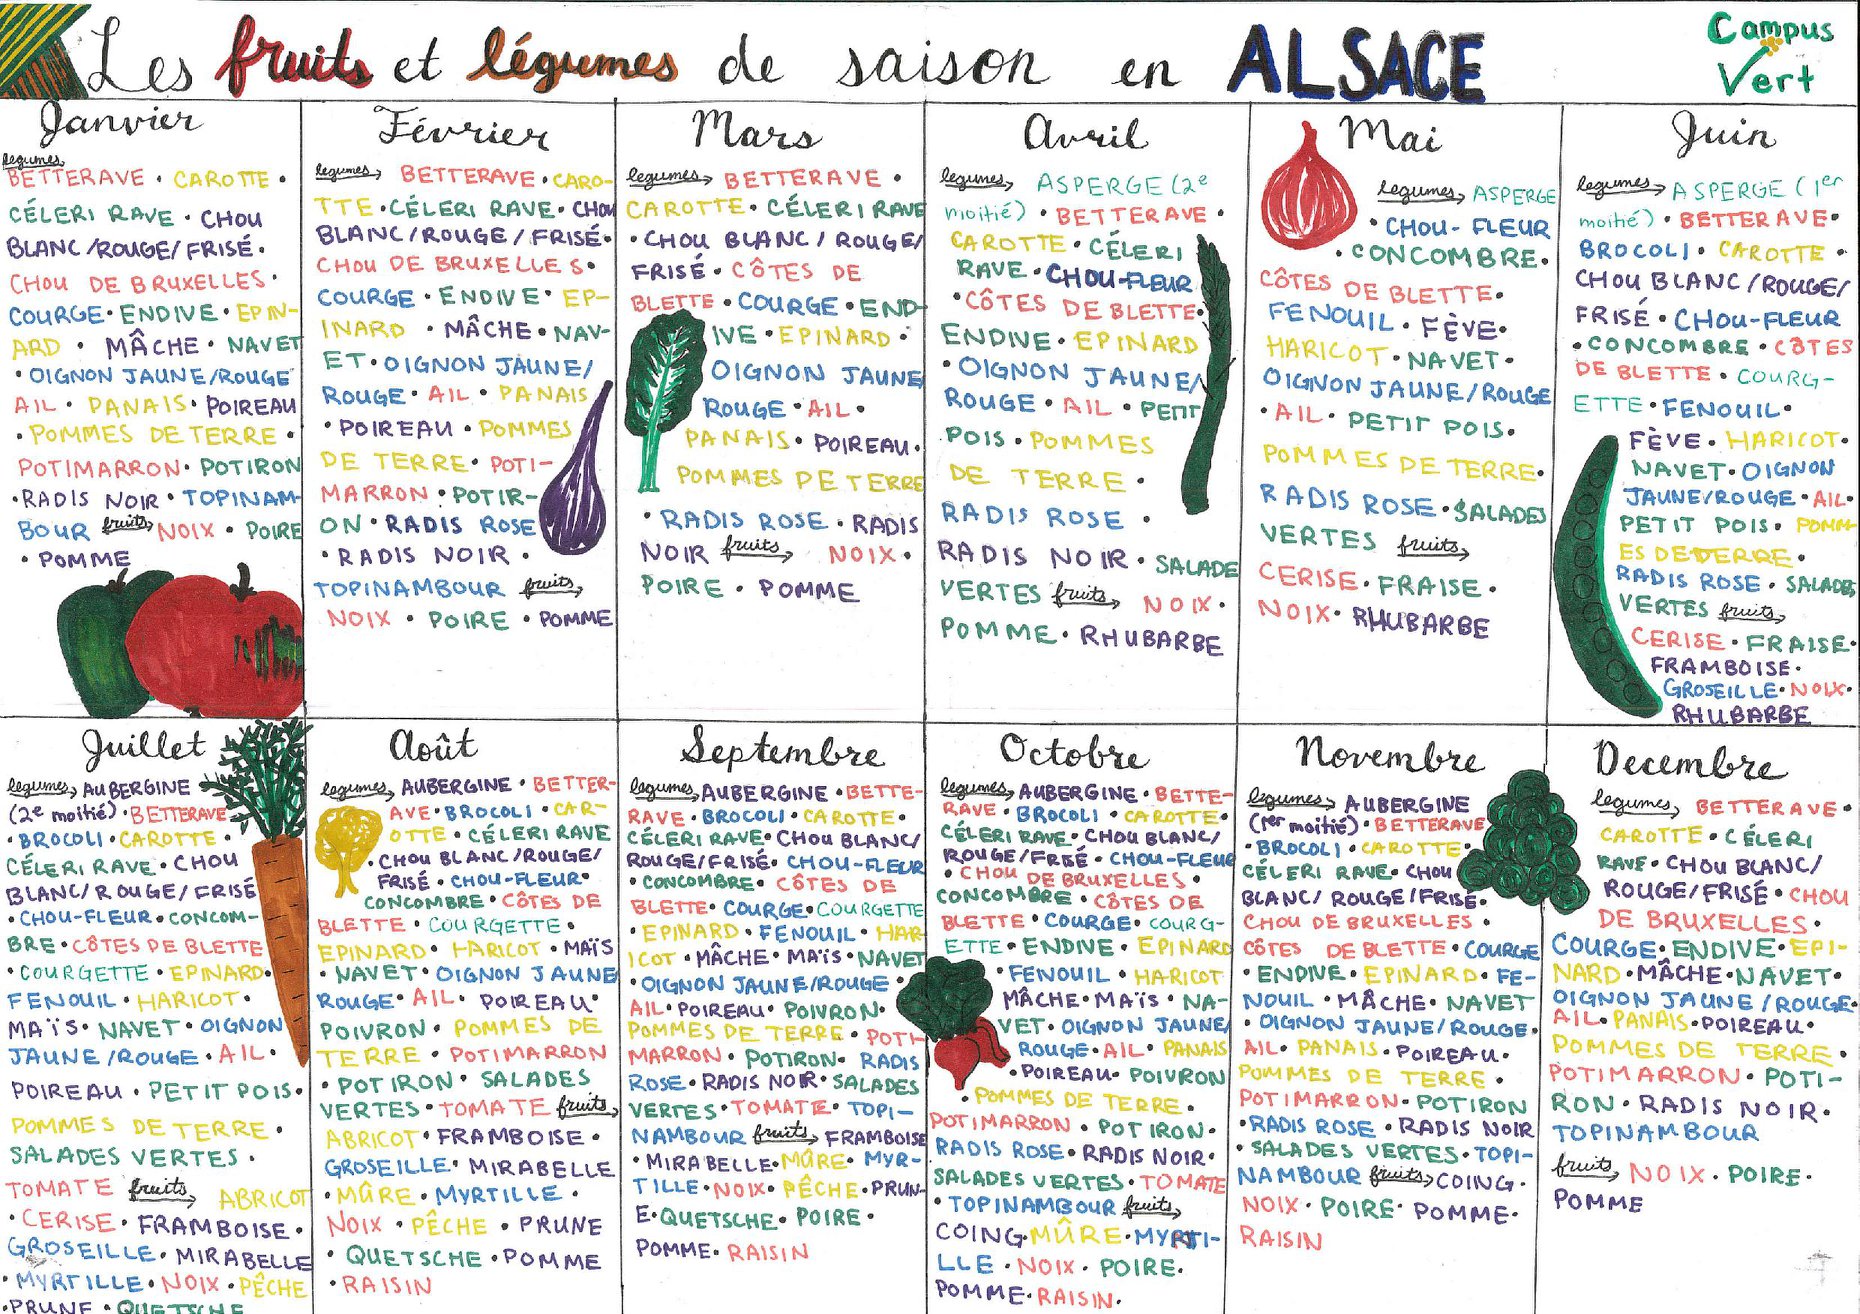 Les fruits et légumes de saison en ALSACE
Campus
Vert
Janvier
légumes
BETTERAVE • CAROTTE •
CÉLERI RAVE • CHOU
BLANC/ROUGE/FRISÉ •
CHOU DE BRUXELLES •
COURGE • ENDIVE • EPIN-
ARD • MÂCHE • NAVET
• OIGNON JAUNE/ROUGE
AIL • PANAIS • POIREAU
• POMMES DE TERRE •
POTIMARRON • POTIRON
• RADIS NOIR • TOPINAM-
BOUR fruits NOIX • POIRE
• POMME
Février
légumes BETTERAVE • CARO-
TTE • CÉLERI RAVE • CHOU
BLANC/ROUGE/FRISÉ •
CHOU DE BRUXELLES •
COURGE • ENDIVE • EP-
INARD • MÂCHE • NAV-
ET • OIGNON JAUNE/
ROUGE • AIL • PANAIS
• POIREAU • POMMES
DE TERRE • POTI-
MARRON • POTIR-
ON • RADIS ROSE
• RADIS NOIR •
TOPINAMBOUR fruits
NOIX • POIRE • POMME
Mars
légumes BETTERAVE •
CAROTTE • CÉLERI RAVE
• CHOU BLANC/ROUGE/
FRISÉ • CÔTES DE
BLETTE • COURGE • END-
IVE • EPINARD •
OIGNON JAUNE/
ROUGE • AIL •
PANAIS • POIREAU •
POMMES DE TERRE
• RADIS ROSE • RADIS
NOIR fruits NOIX •
POIRE • POMME
Avril
légumes ASPERGE (2e
moitié) • BETTERAVE •
CAROTTE • CÉLERI
RAVE • CHOU-FLEUR
• CÔTES DE BLETTE •
ENDIVE • EPINARD
• OIGNON JAUNE/
ROUGE • AIL • PETIT
POIS • POMMES
DE TERRE •
RADIS ROSE •
RADIS NOIR • SALADE
VERTES fruits NOIX •
POMME • RHUBARBE
Mai
légumes ASPERGE
• CHOU-FLEUR
• CONCOMBRE •
CÔTES DE BLETTE •
FENOUIL • FÈVE •
HARICOT • NAVET •
OIGNON JAUNE/ROUGE
• AIL • PETIT POIS •
POMMES DE TERRE •
RADIS ROSE • SALADES
VERTES fruits
CERISE • FRAISE •
NOIX • RHUBARBE
Juin
légumes ASPERGE (1er
moitié) • BETTERAVE •
BROCOLI • CAROTTE •
CHOU BLANC/ROUGE/
FRISÉ • CHOU-FLEUR
• CONCOMBRE • CÔTES
DE BLETTE • COURG-
ETTE • FENOUIL •
FÈVE • HARICOT •
NAVET • OIGNON
JAUNE/ROUGE • AIL •
PETIT POIS • POMM-
ES DE TERRE •
RADIS ROSE • SALADES
VERTES fruits
CERISE • FRAISE •
FRAMBOISE •
GROSEILLE • NOIX •
RHUBARBE
Juillet
légumes AUBERGINE
(2e moitié) • BETTERAVE
• BROCOLI • CAROTTE •
CÉLERI RAVE • CHOU
BLANC/ROUGE/FRISÉ
• CHOU-FLEUR • CONCOM-
BRE • CÔTES DE BLETTE
• COURGETTE • EPINARD •
FENOUIL • HARICOT •
MAÏS • NAVET • OIGNON
JAUNE/ROUGE • AIL •
POIREAU • PETIT POIS •
POMMES DE TERRE •
SALADES VERTES •
TOMATE fruits ABRICOT
• CERISE • FRAMBOISE •
GROSEILLE • MIRABELLE
• MYRTILLE • NOIX • PÊCHE
• PRUNE • QUETSCHE
Août
légumes AUBERGINE • BETTER-
AVE • BROCOLI • CAR-
OTTE • CÉLERI RAVE
• CHOU BLANC/ROUGE/
FRISÉ • CHOU-FLEUR •
CONCOMBRE • CÔTES DE
BLETTE • COURGETTE •
EPINARD • HARICOT • MAÏS
• NAVET • OIGNON JAUNE
ROUGE • AIL • POIREAU •
POIVRON • POMMES DE
TERRE • POTIMARRON
• POTIRON • SALADES
VERTES • TOMATE fruits
ABRICOT • FRAMBOISE •
GROSEILLE • MIRABELLE
• MÛRE • MYRTILLE •
NOIX • PÊCHE • PRUNE
• QUETSCHE • POMME
• RAISIN
Septembre
légumes AUBERGINE • BETTE-
RAVE • BROCOLI • CAROTTE •
CÉLERI RAVE • CHOU BLANC/
ROUGE/FRISÉ • CHOU-FLEUR
• CONCOMBRE • CÔTES DE
BLETTE • COURGE • COURGETTE
• EPINARD • FENOUIL • HAR-
ICOT • MÂCHE • MAÏS • NAVET
• OIGNON JAUNE/ROUGE •
AIL • POIREAU • POIVRON •
POMMES DE TERRE • POTI-
MARRON • POTIRON • RADIS
ROSE • RADIS NOIR • SALADES
VERTES • TOMATE • TOPI-
NAMBOUR fruits FRAMBOISE
• MIRABELLE • MÛRE • MYR-
TILLE • NOIX • PÊCHE • PRUN-
E • QUETSCHE • POIRE •
POMME • RAISIN
Octobre
légumes AUBERGINE • BETTE-
RAVE • BROCOLI • CAROTTE •
CÉLERI RAVE • CHOU BLANC/
ROUGE/FRISÉ • CHOU-FLEUR
• CHOU DE BRUXELLES •
CONCOMBRE • CÔTES DE
BLETTE • COURGE • COURG-
ETTE • ENDIVE • EPINARD
• FENOUIL • HARICOT
MÂCHE • MAÏS • NA-
VET • OIGNON JAUNE/
ROUGE • AIL • PANAIS
• POIREAU • POIVRON
• POMMES DE TERRE •
POTIMARRON • POTIRON •
RADIS ROSE • RADIS NOIR •
SALADES VERTES • TOMATE
• TOPINAMBOUR fruits
COING • MÛRE • MYRTI-
LLE • NOIX • POIRE •
POMME • RAISIN •
Novembre
légumes AUBERGINE
(1er moitié) • BETTERAVE
• BROCOLI • CAROTTE •
CÉLERI RAVE • CHOU
BLANC/ROUGE/FRISÉ •
CHOU DE BRUXELLES •
CÔTES DE BLETTE • COURGE
• ENDIVE • EPINARD • FE-
NOUIL • MÂCHE • NAVET
• OIGNON JAUNE/ROUGE •
AIL • PANAIS • POIREAU •
POMMES DE TERRE •
POTIMARRON • POTIRON
• RADIS ROSE • RADIS NOIR
• SALADES VERTES • TOPI-
NAMBOUR fruits COING •
NOIX • POIRE • POMME •
RAISIN
Decembre
légumes BETTERAVE •
CAROTTE • CÉLERI
RAVE • CHOU BLANC/
ROUGE/FRISÉ • CHOU
DE BRUXELLES •
COURGE • ENDIVE • EPI-
NARD • MÂCHE • NAVET •
OIGNON JAUNE/ROUGE •
AIL • PANAIS • POIREAU •
POMMES DE TERRE •
POTIMARRON • POTI-
RON • RADIS NOIR •
TOPINAMBOUR
fruits NOIX • POIRE •
POMME